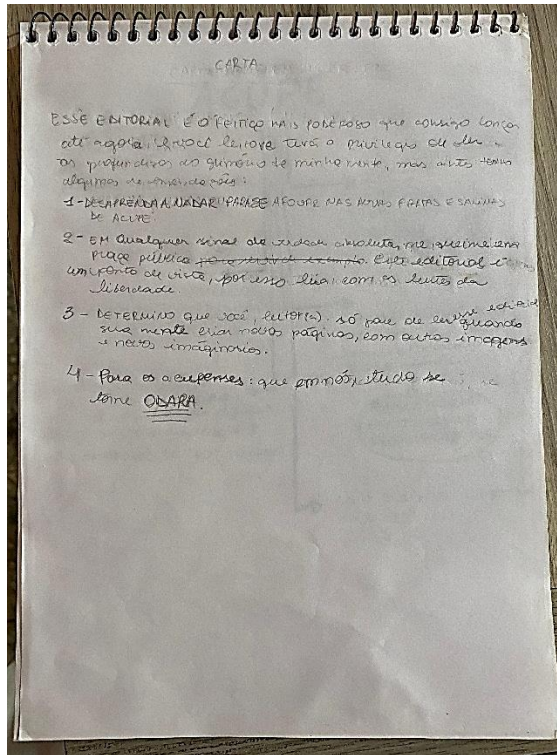 CARTA
ESSE EDITORIAL É O FEITIÇO MAIS PODEROSO que consigo lançar
até agora. você leitore terá o privilégio de ler
as profundezas do de minha mente, mas antes temos
algumas recomendações:
1 - DESAPRENDA A NADAR PARA SE AFOGAR NAS ÁGUAS E SALINAS
DE ACUPE.
2 - EM qualquer sinal de verdade absoluta, me queime em
praça pública. Este editorial é
um ponto de vista, por isso leia com as lentes da
liberdade.
3 - DETERMINO que você, leitor(a) só pare de ler quando
sua mente criar novas páginas, com outras imagens
e novos imaginários.
4 - Para os acupenses: que em nós, tudo se
torne ODARA.